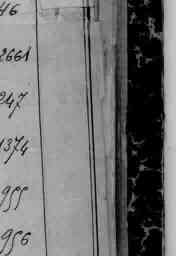 46
2661
247
1374
955
956